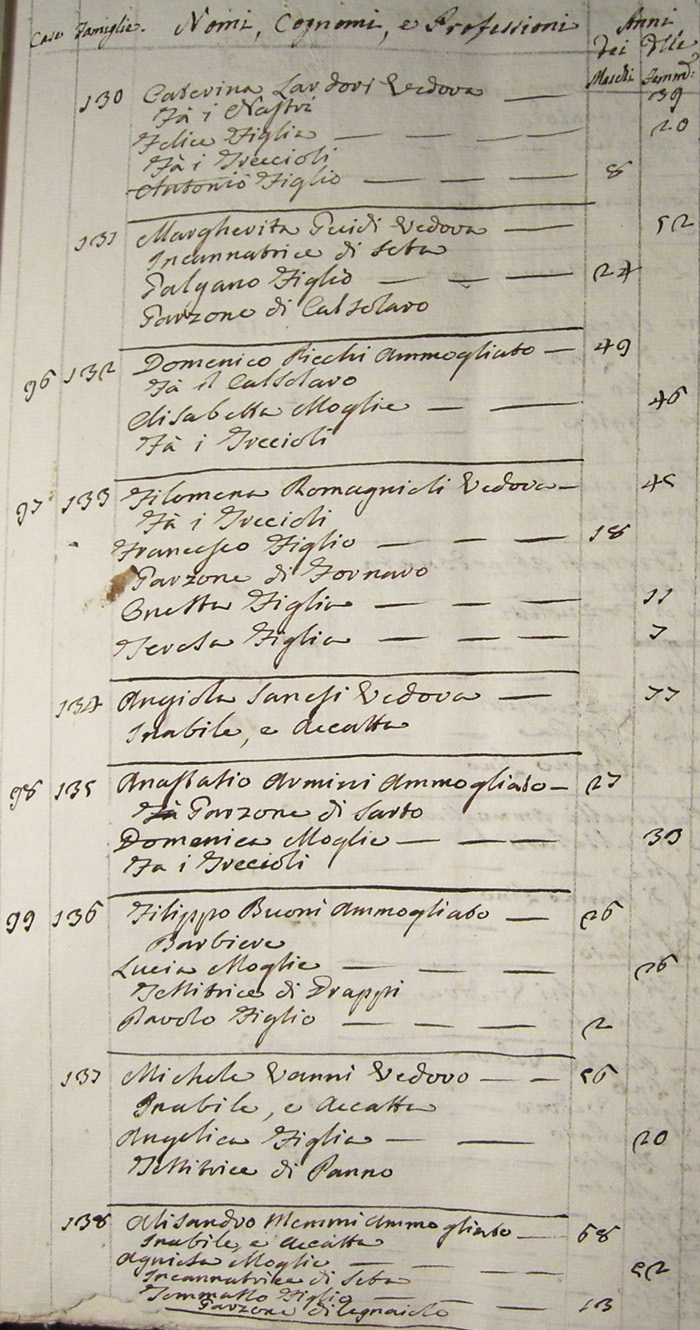 Case Famiglie. Nomi, Cognomi, e Professioni Anni
dei Delle
Maschi Femm:
130 Caterina Landori Vedova — 39
Fà i Nastri
Felice Figlia — — — 20
Fà i Treccioli
Antonio Figlio — — — 8
131 Margherita Guidi Vedova — 52
Incannatrice di Seta
Galgano Figlio — — — 24
Garzone di Calsolaro
96 132 Domenico Ricchi Ammogliato — 49
Fà il Calsolaro
Elisabetta Moglie — — 46
Fà i Treccioli
97 133 Filomena Romagnioli Vedova — 45
Fà i Treccioli
Francesco Figlio — — — 18
Garzone di Fornaro
Onesta Figlia — — — 11
Teresa Figlia — — — 7
134 Angiola Sanesi Vedova — 77
Inabile, e Accatta
98 135 Anastasio Armini Ammogliato — 27
Fà Garzone di Sarto
Domenica Moglie — — — 33
Fa i Treccioli
99 136 Filippo Buoni Ammogliato — 26
Barbiere
Lucia Moglie — — — 26
Tessitrice di Drappi
Pavolo Figlio — — — 2
137 Michele Vanni Vedovo — — 56
Inabile, e Accatta
Angelica Figlia — — 20
Tessitrice di Panno
138 Alisandro Memmi Ammogliato — 68
Inabile, e Accatta
Agniesa Moglie — — — 52
Incannatrice di Seta
Tommasso Figlio — — — 13
Garzone di legnaiolo